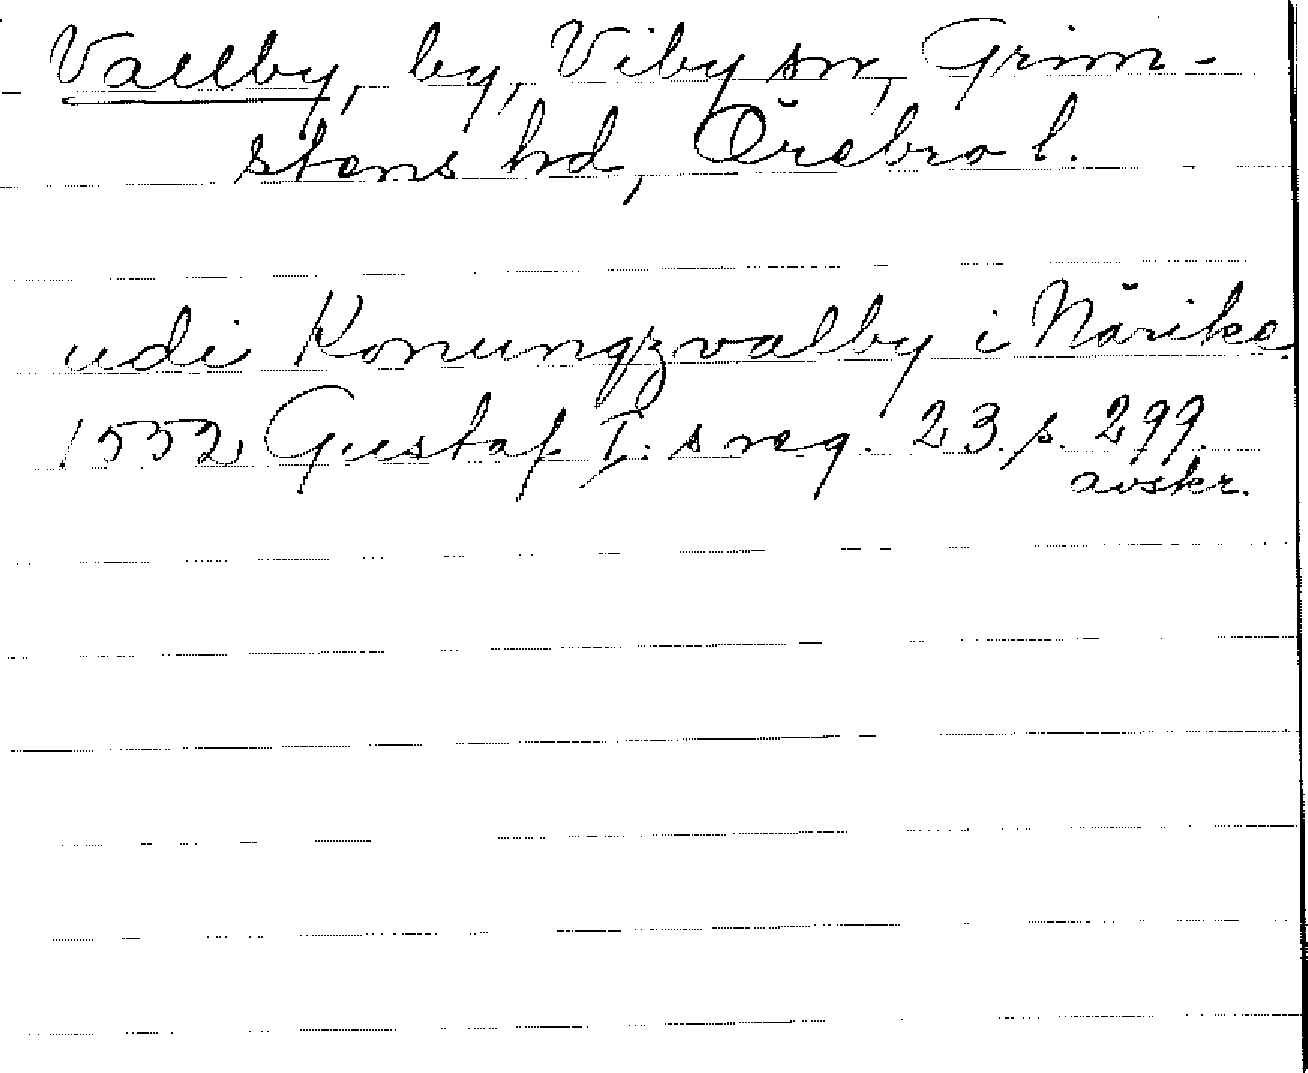 Vallby, by, Viby sn, Grim-
stens hd, Örebro l.
udi Konungzvalby i Närike
1552 Gustaf I:s reg. 23. s. 299.
avskr.